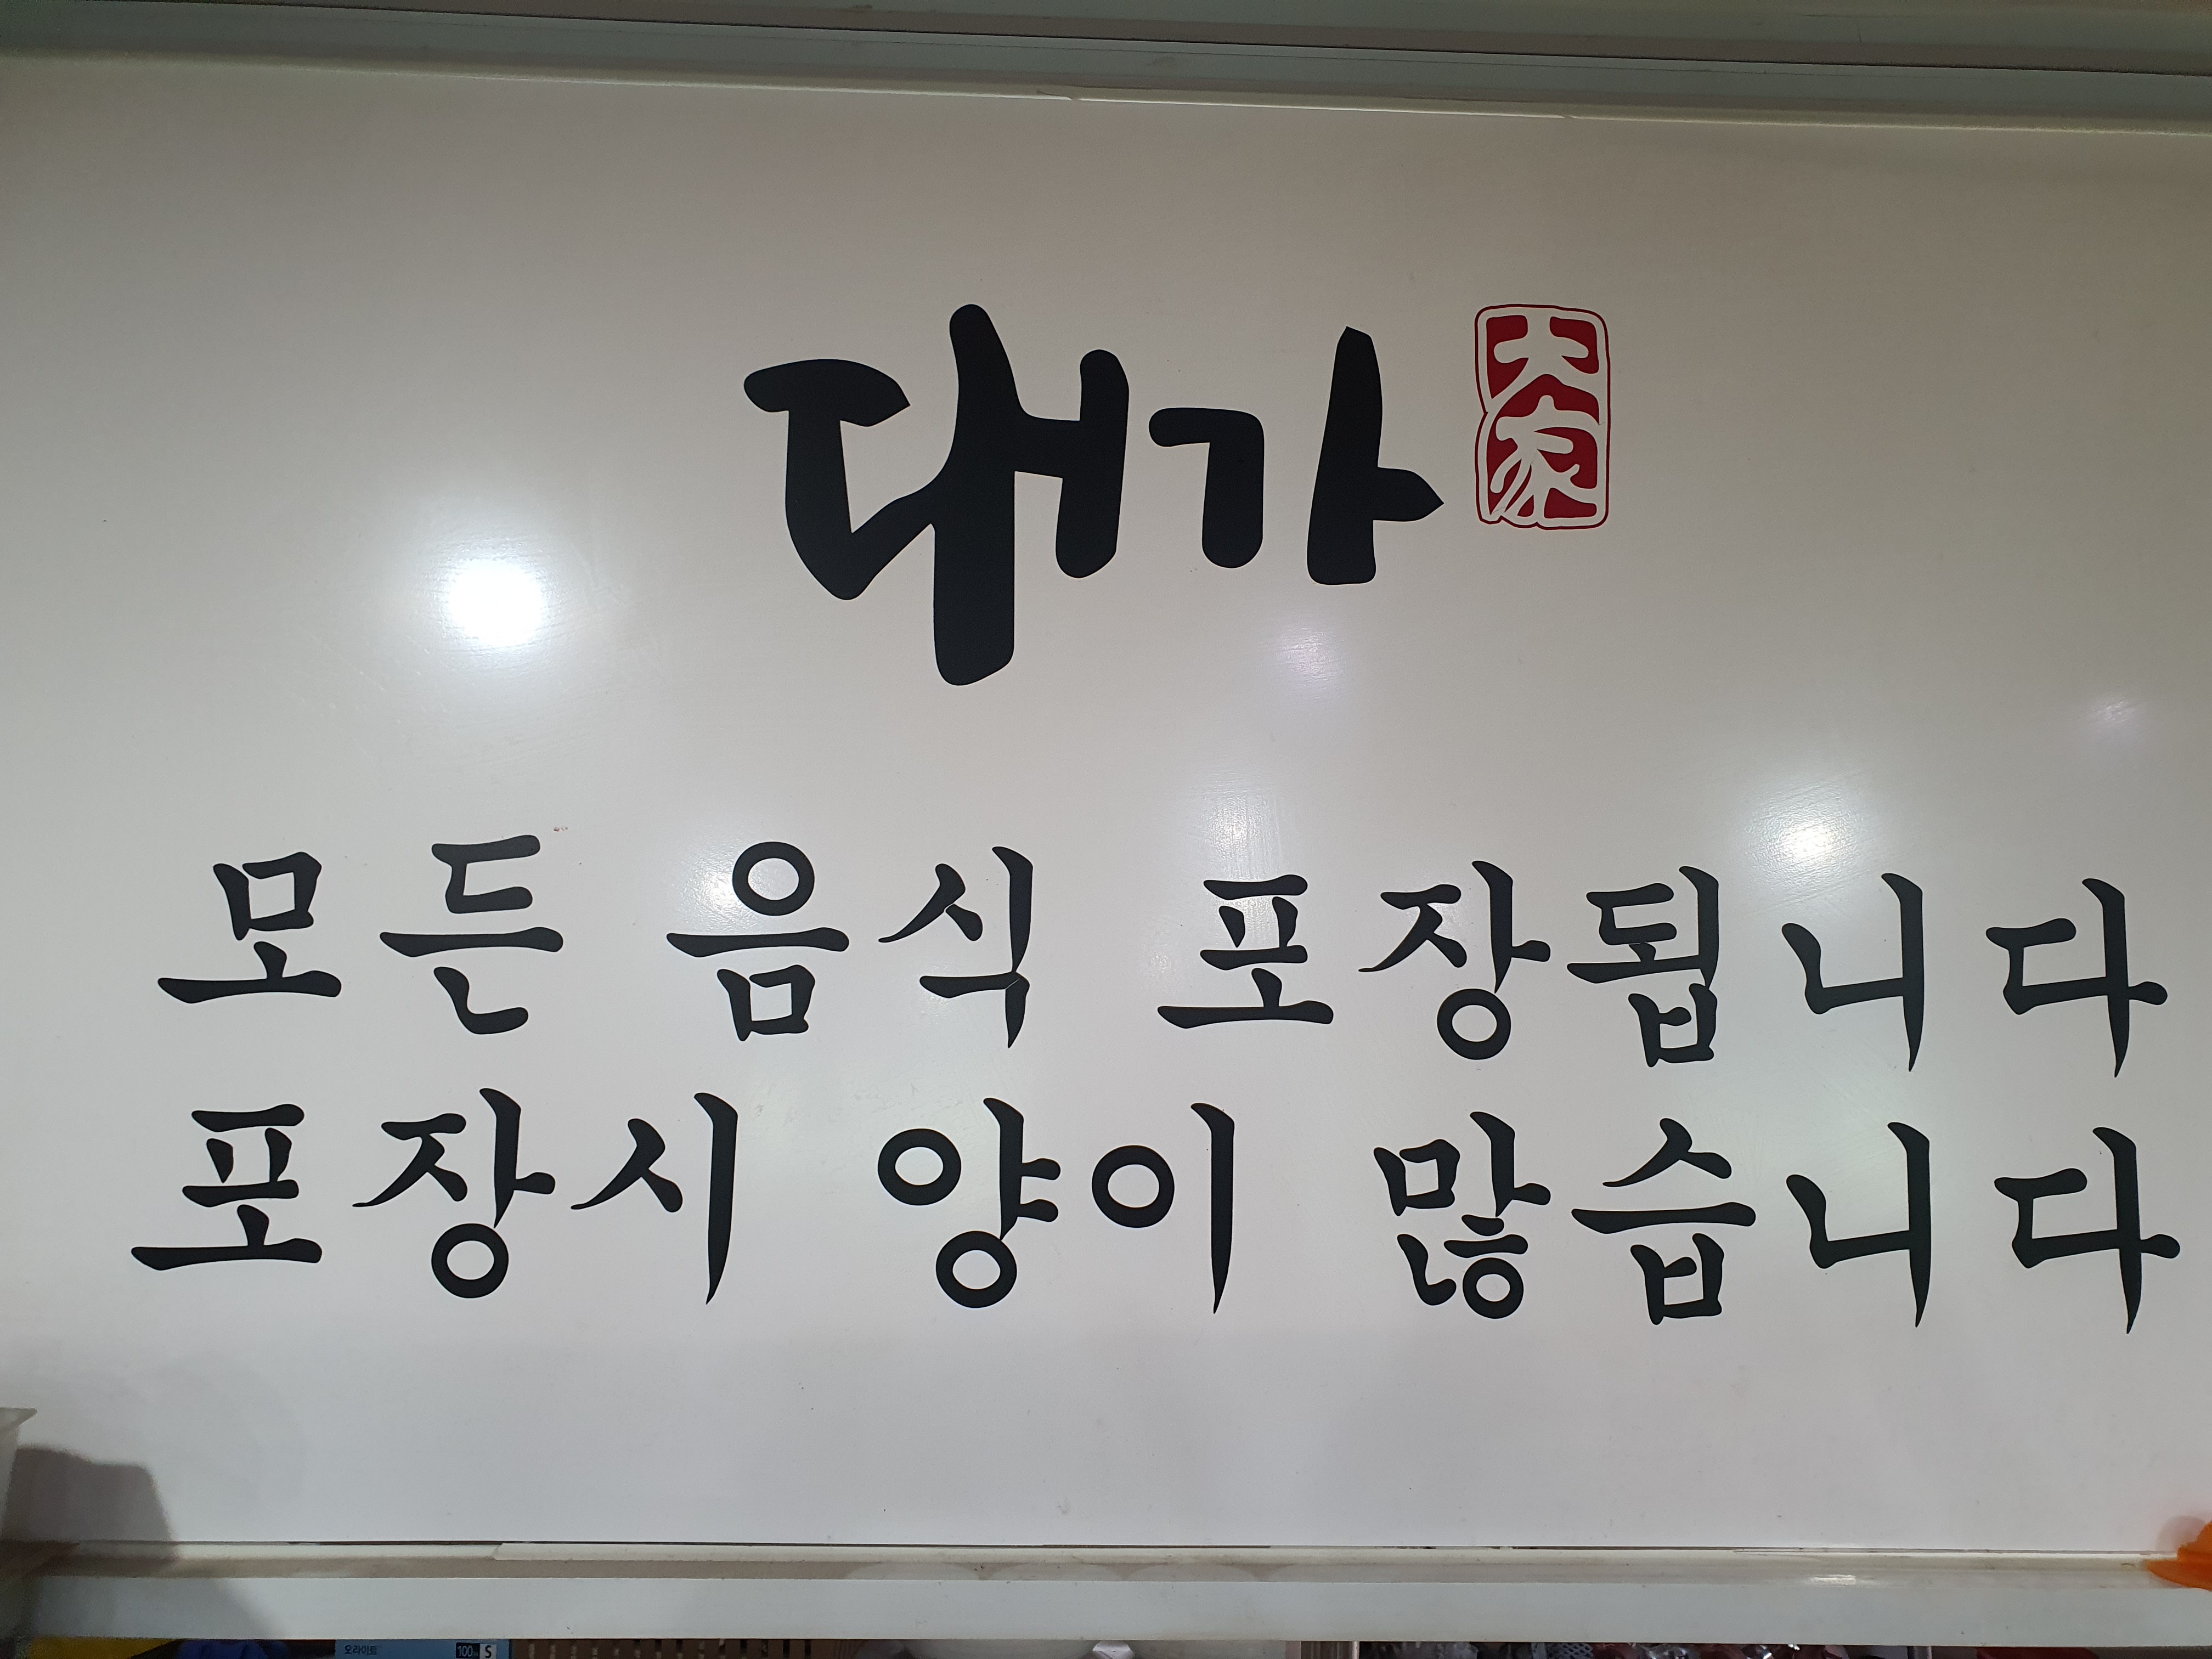 대가 大家
모든 음식 포장됩니다
포장시 양이 많습니다
오라이트 100 S